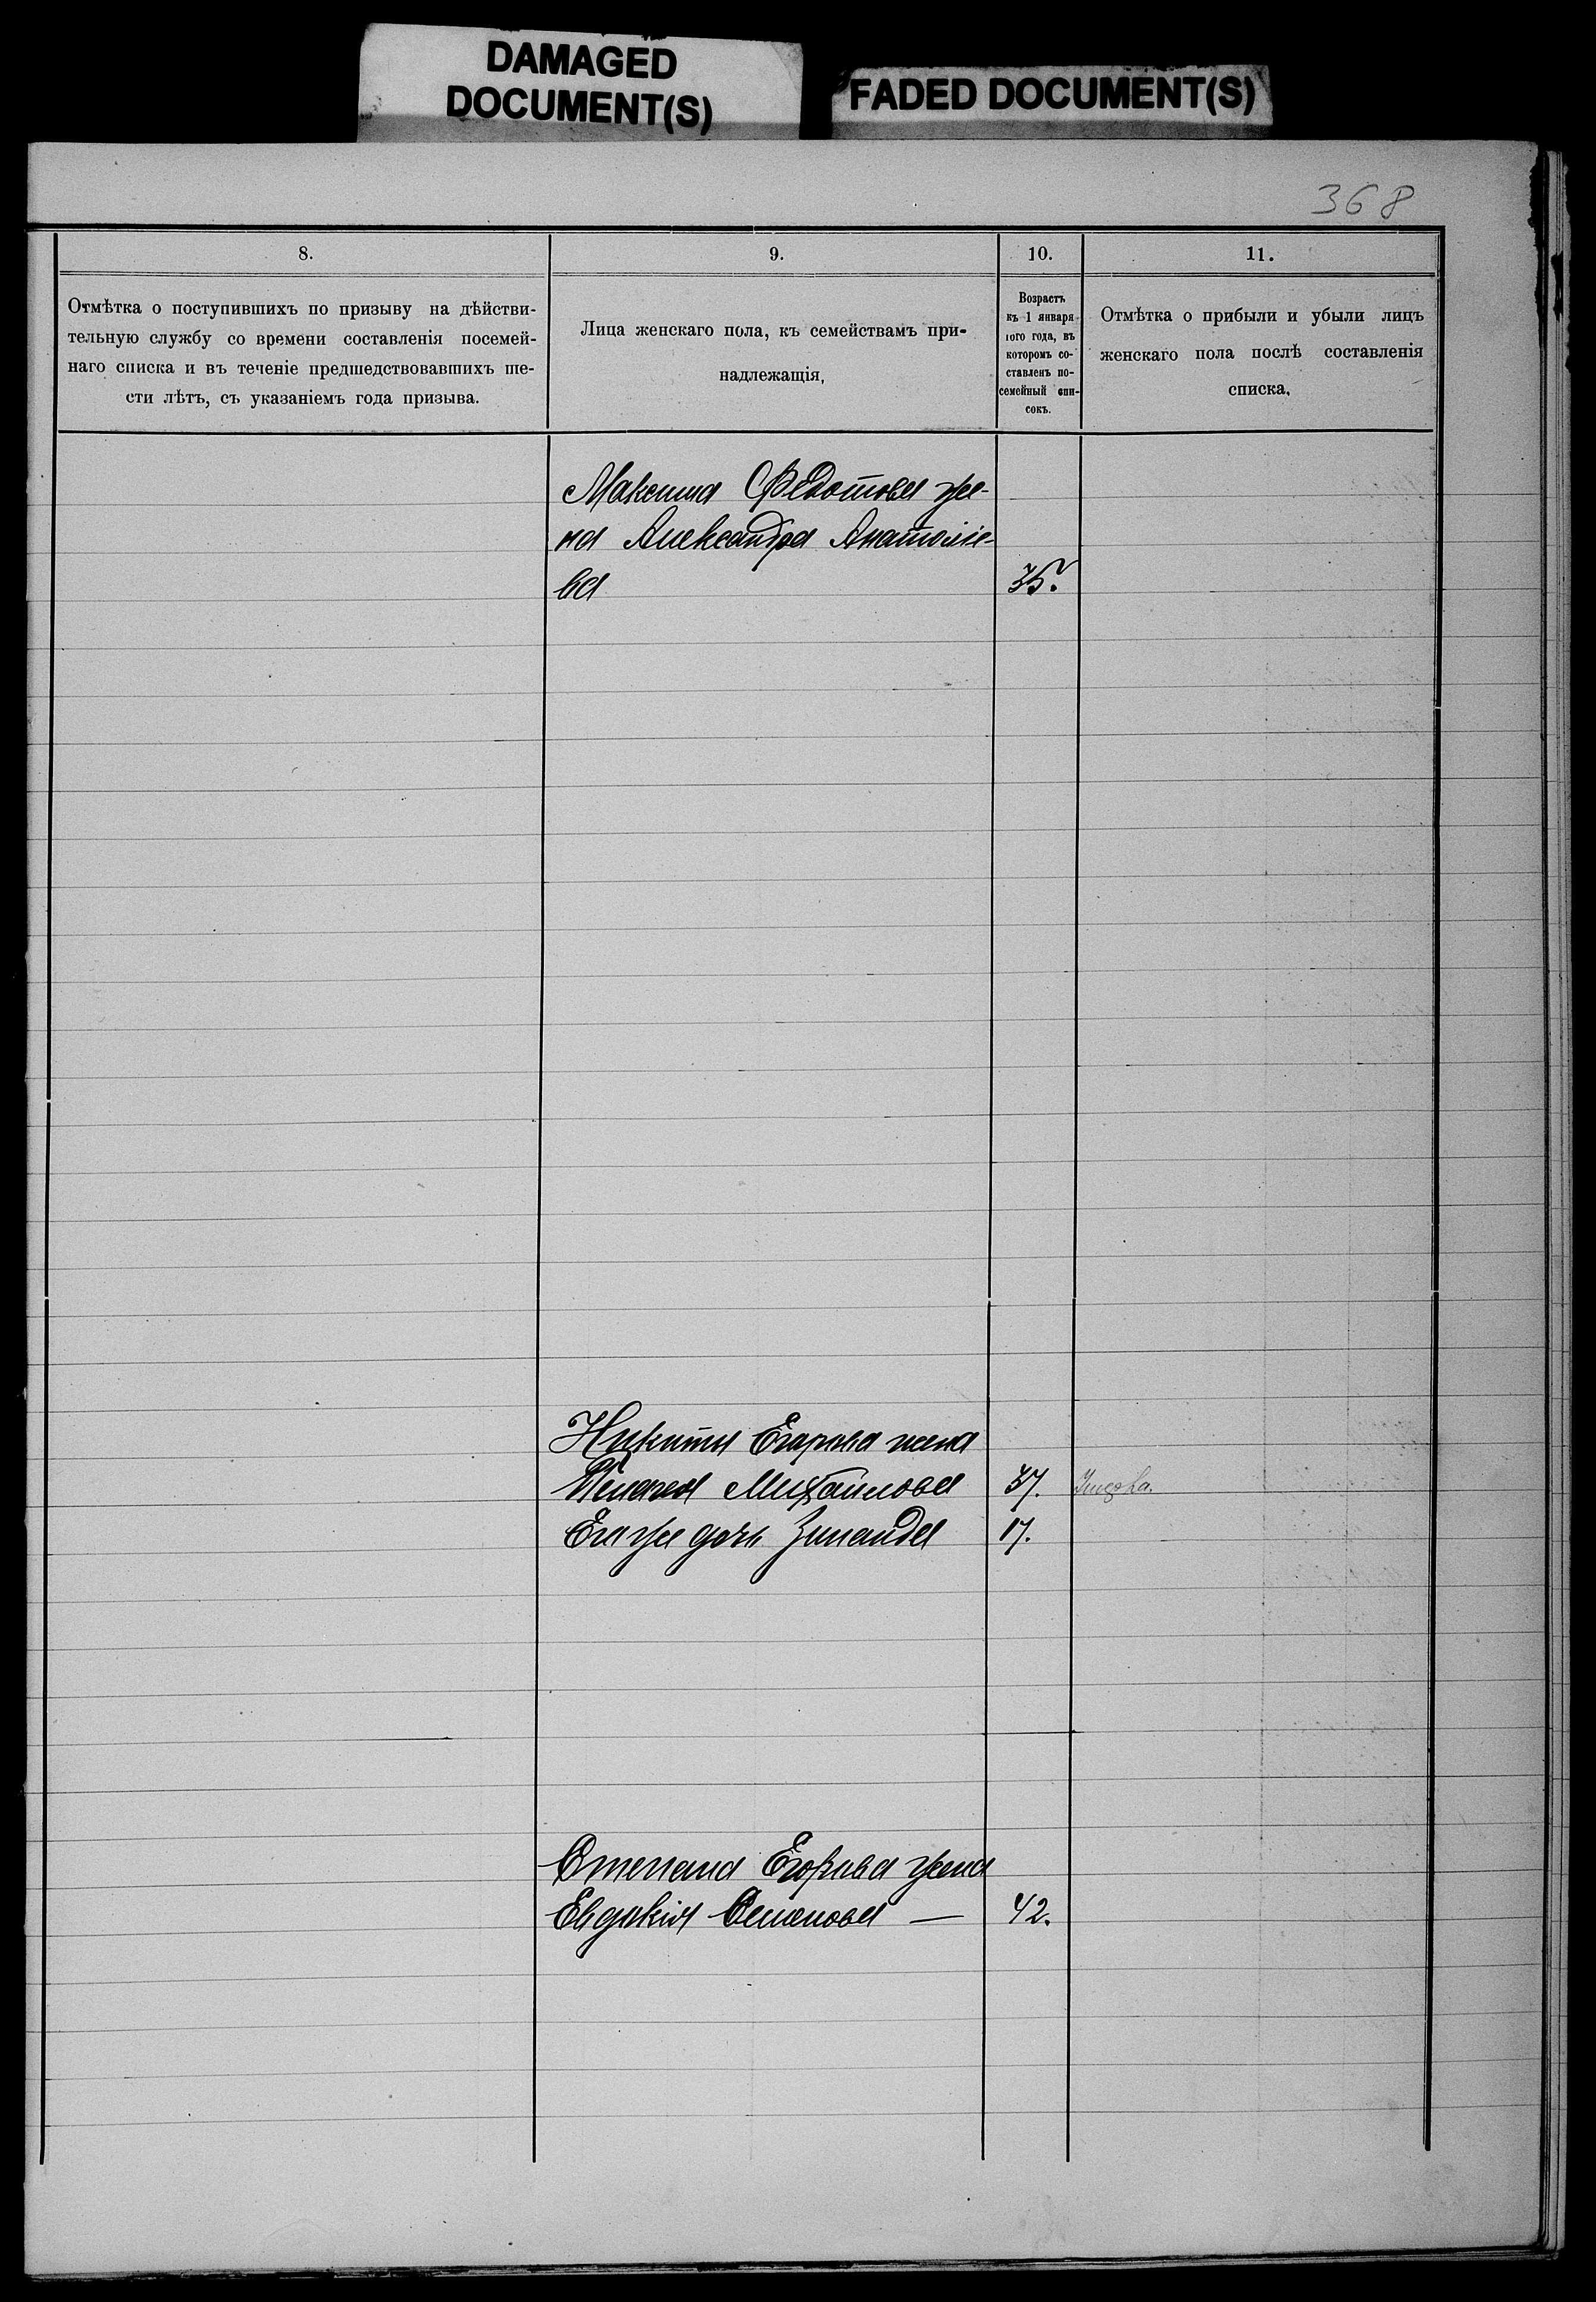 DAMAGED
DOCUMENT(S)
FADED DOCUMENT(S)
368
8.
9.
10.
11.
Отмѣтка о поступившихъ по призыву на дѣйстви-
тельную службу со времени составленія посемей-
наго списка и въ теченіе предшедствовавшихъ ше-
сти лѣтъ, съ указаніемъ года призыва.
Лица женскаго пола, къ семействамъ при-
надлежащія,
Возрастъ
къ 1 января
того года, въ
которомъ со-
ставленъ по-
семейный спи-
сокъ.
Отмѣтка о прибыли и убыли лицъ
женскаго пола послѣ составленія
списка.
Максима Федотова же-
на Александра Анатоліе-
ва 35.
Никиты Егарова жена
Пелагея Михайлова 37.
Его же дочь Зинаида 17.
Степана Егорова жена
Евдокія Семенова — 42.